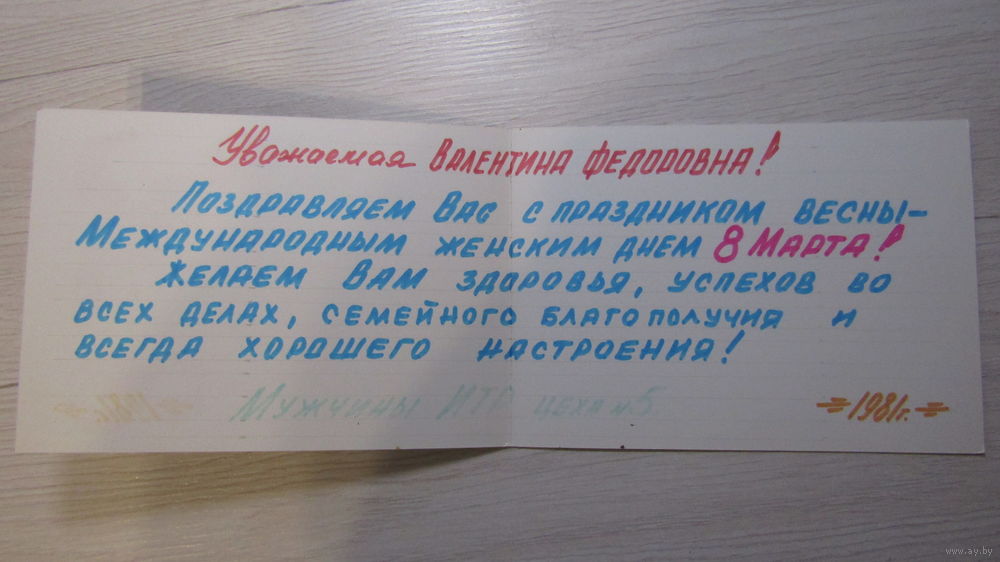 Уважаемая Валентина Федоровна!
Поздравляем Вас с праздником весны-
Международным женским днем 8 Марта!
Желаем Вам здоровья, успехов во
всех делах, семейного благополучия и
всегда хорошего настроения!
Мужчины ИТР цеха н5
1981г. 1981г.
www.ay.by